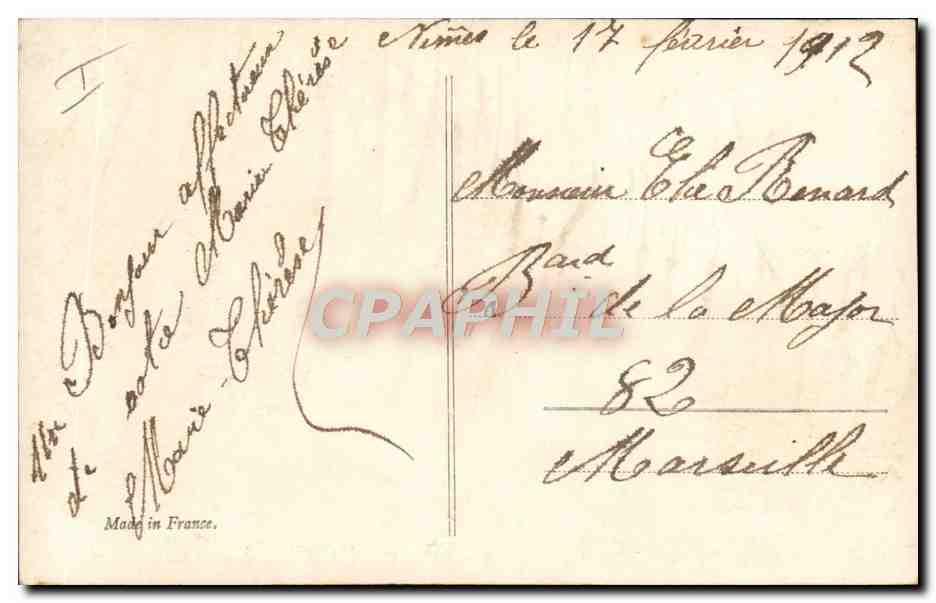 I
Nîmes le 17 février 1912
Un Bonjour affectueux
de votre Marie Thérèse
Marie-Thérèse
Monsieur Elie Renard
Bard de la Major
82
Marseille
CPAPHIL
Made in France.